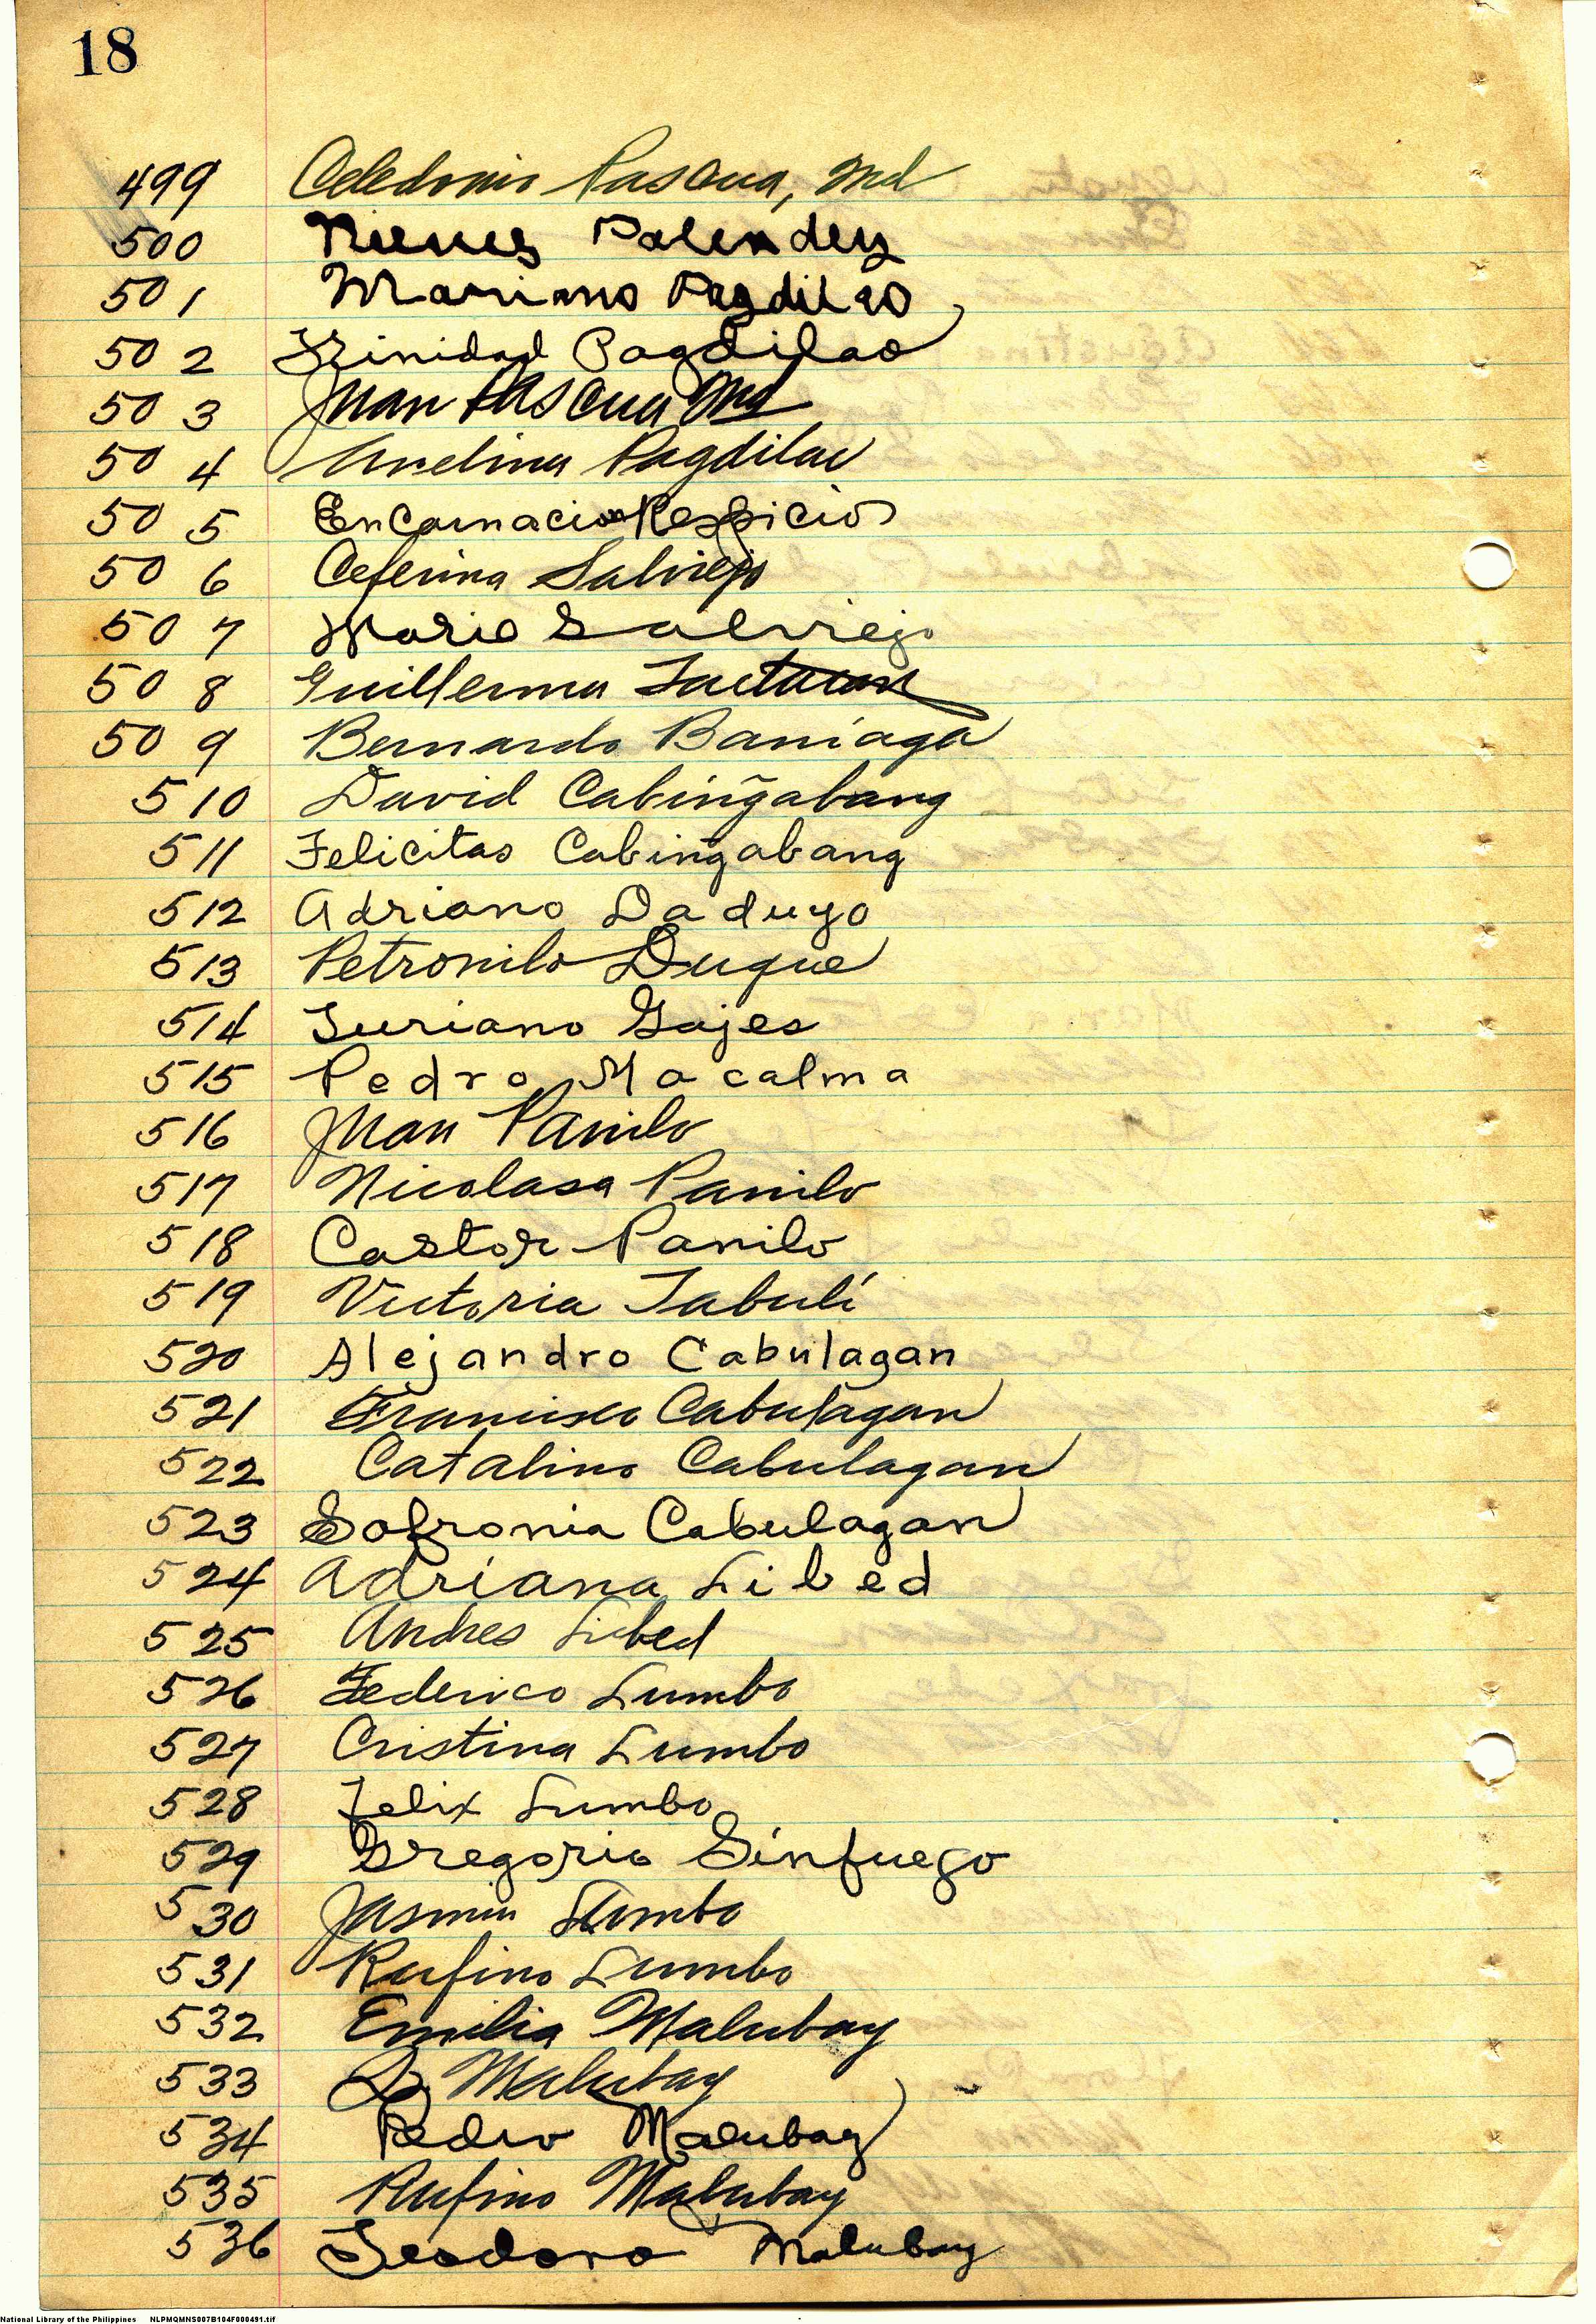 18
499 Celedonio Pascua, Md
500 Nieves Palendez
501 Mariano Pagdilao
502 Trinidad Pagdilao
503 Juan Pascua Md
504 Avelina Pagdilao
505 Encarnacion Respicio
506 Ceferina Salviejo
507 Mario Salviejo
508 Guillerma Tactacan
509 Bernardo Baniaga
510 David Cabing̃abang
511 Felicitas Cabing̃abang
512 Adriano Daduyo
513 Petronilo Duque
514 Suriano Gajes
515 Pedro Macalma
516 Juan Panilo
517 Nicolasa Panilo
518 Castor Panilo
519 Victoria Tabuli
520 Alejandro Cabulagan
521 Francisco Cabulagan
522 Catalino Cabulagan
523 Sofronia Cabulagan
524 Adriana Libed
525 Andres Libed
526 Federico Lumbo
527 Cristina Lumbo
528 Felix Lumbo
529 Gregorio Sinfuego
530 Jasmin Lumbo
531 Rufino Lumbo
532 Emilia Malubay
533 Malubay
534 Pedro Malubay
535 Rufino Malubay
536 Teodoro Malubay
National Library of the Philippines NLPMQMNS007B104F000491.tif